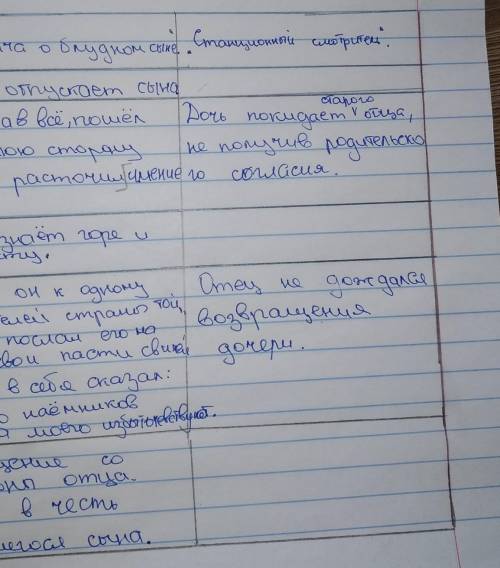 ча о блудном сыне. "Станционный смотритель".
отпускает сына
ав всё, пошёл Дочь покидает старого отца,
юю сторону не получив родительско
расточил имение го согласия.
знаёт горе и
ту.
он к одному Отец не дождался
елей страны той, возвращения
послал его на дочери.
свиней
в себя сказал:
о наёмников
моего избыточествуют.
щение со
оны отца.
в честь
шегося сына.